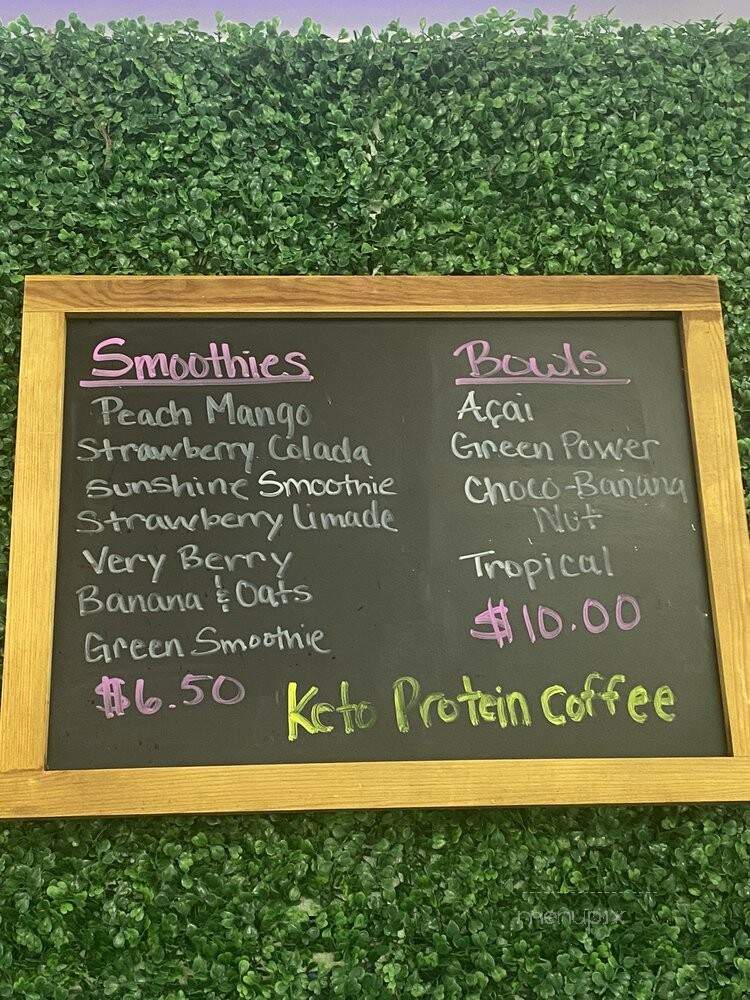 Smoothies
Peach Mango
Strawberry Colada
Sunshine Smoothie
Strawberry Limade
Very Berry
Banana & Oats
Green Smoothie
$6.50
Bowls
Açai
Green Power
Choco-Banana
Nut
Tropical
$10.00
Keto Protein Coffee
menupix